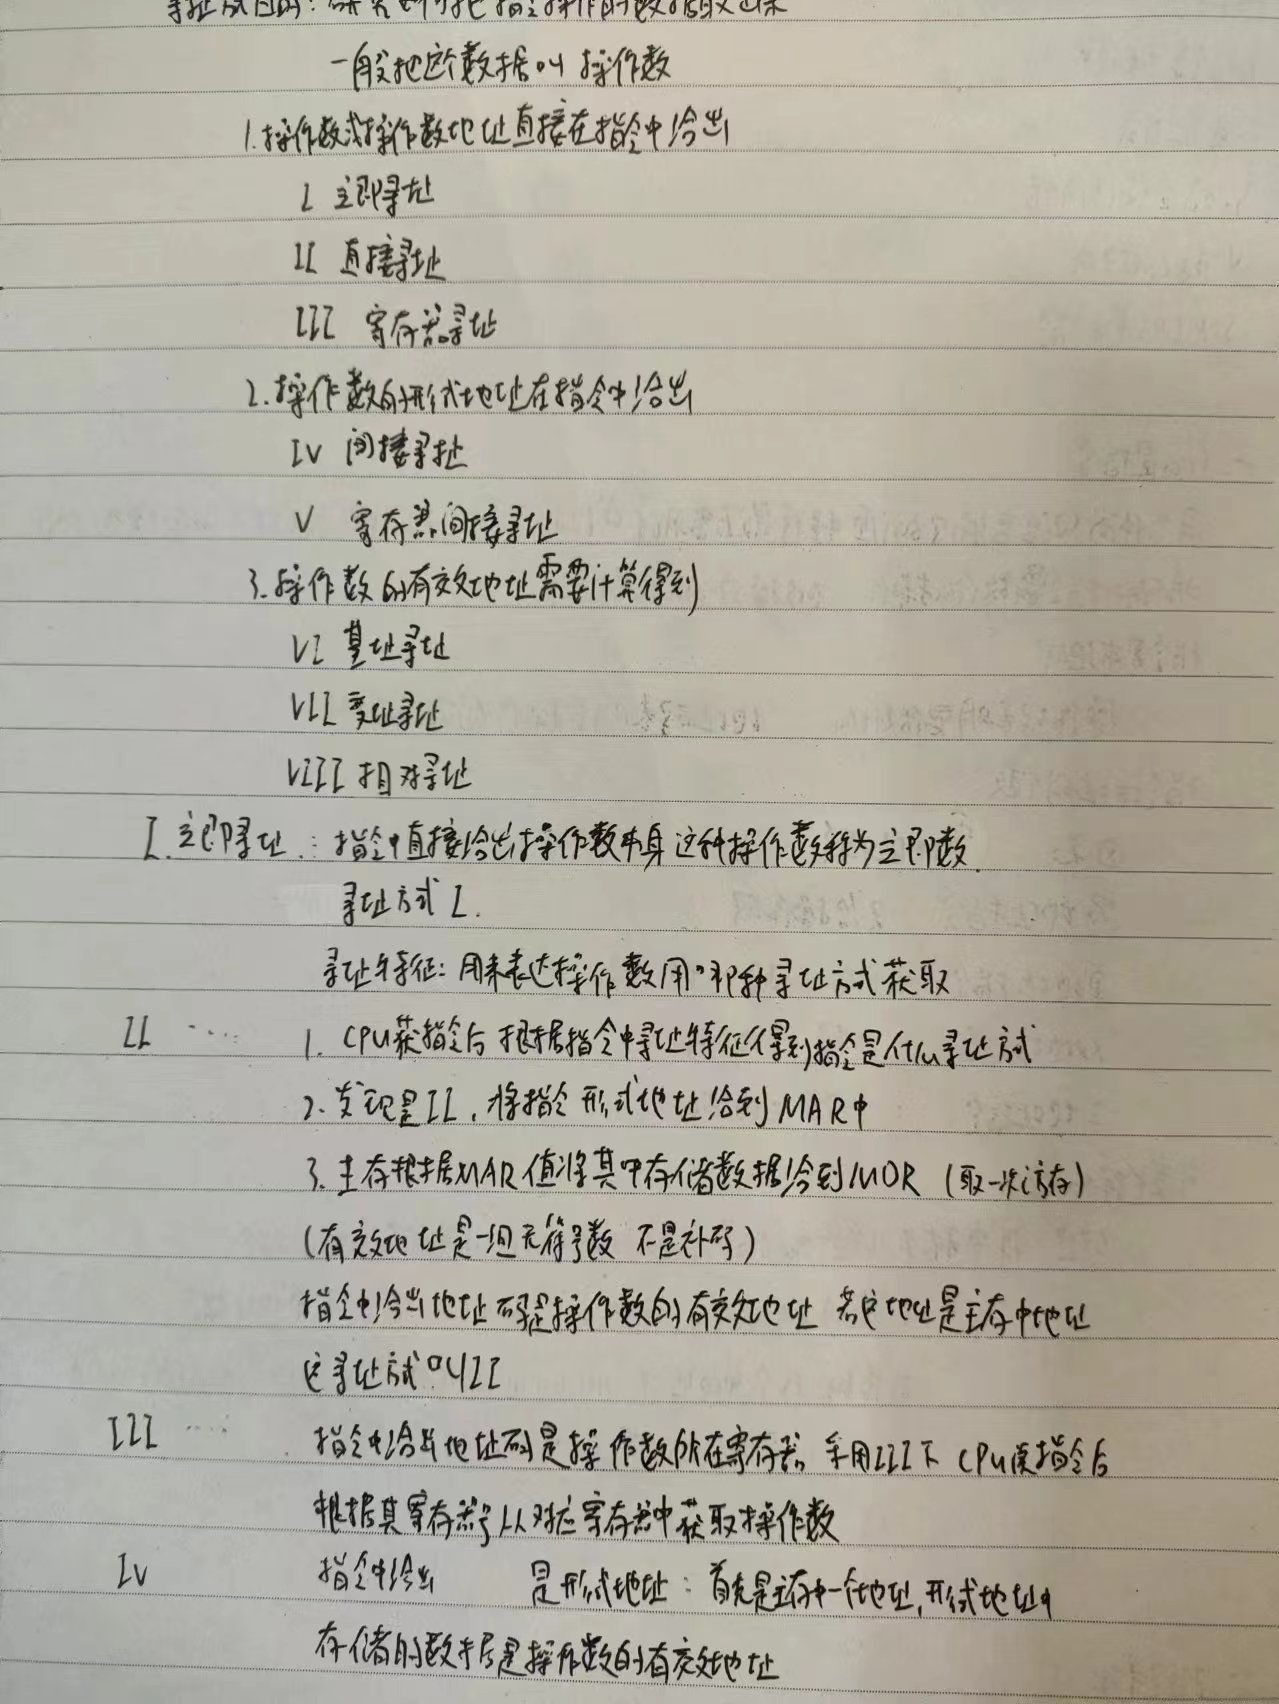 寻址方式目的：研究如何把指令操作的数据取出来
一般把这个数据叫 操作数
1.操作数或操作数地址直接在指令中给出
I 立即寻址
II 直接寻址
III 寄存器寻址
2.操作数的形式地址在指令中给出
IV 间接寻址
V 寄存器间接寻址
3.操作数的有效地址需要计算得到
VI 基址寻址
VII 变址寻址
VIII 相对寻址
I.立即寻址：指令中直接给出操作数本身 这种操作数称为立即数.
寻址方式 I.
寻址特征：用来表达操作数用哪种寻址方式获取
II .... 1. CPU获指令后 根据指令中寻址特征得到指令是什么寻址方式
2.发现是II，将指令形式地址给到MAR中
3.主存根据MAR值将其中存储数据给到MDR（取一次访存）
（有效地址是一组无符号数 不是补码）
指令中给出地址码是操作数的有效地址 若这地址是主存中地址
这寻址方式叫II
III .... 指令中给出地址码是操作数所在寄存器 采用III下 CPU读指令后
根据其寄存器号从对应寄存器中获取操作数
IV 指令中给出 是形式地址：首先是主存中一个地址，形式地址中
存储的数据是操作数的有效地址